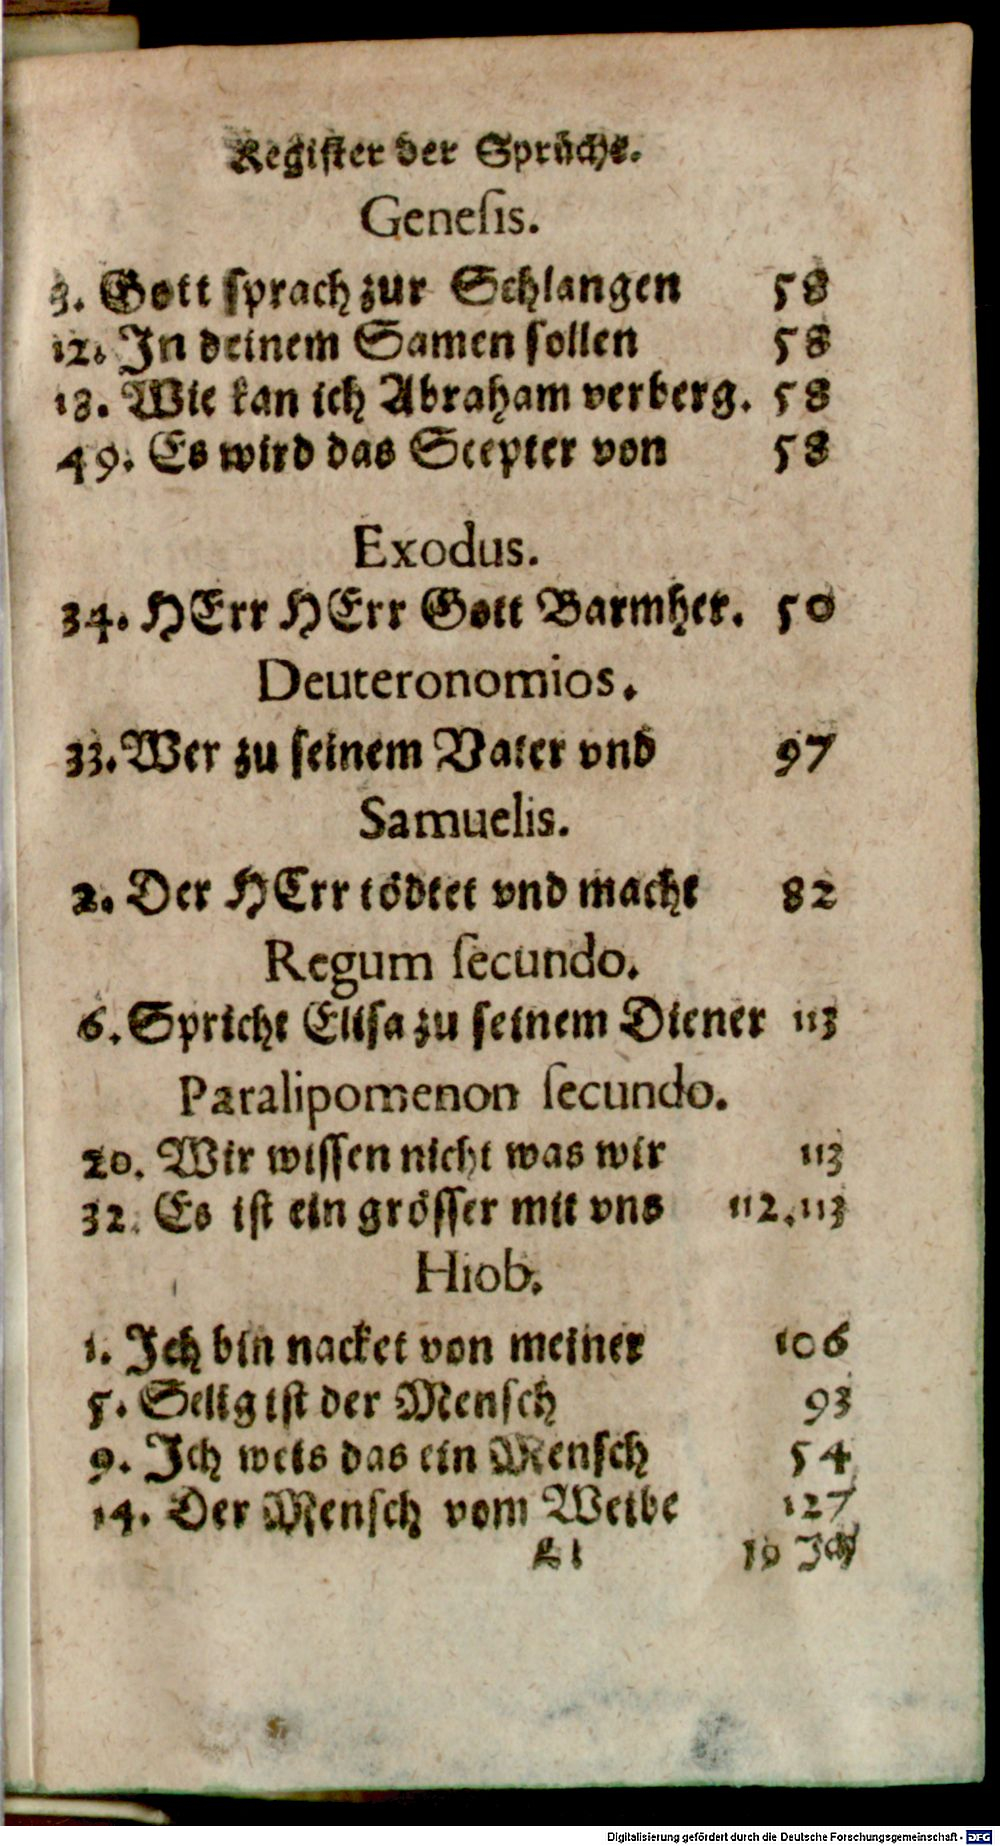 Register der Sprüche.
Genesis.
3. Gott sprach zur Schlangen 58
12. In deinem Samen sollen 58
18. Wie kan ich Abraham verberg. 58
49. Es wird das Scepter von 58
Exodus.
34. HErr HErr Gott Barmher. 50
Deuteronomios.
33. Wer zu seinem Vater vnd 97
Samuelis.
2. Der HErr tödtet vnd macht 82
Regum secundo.
6. Spricht Elisa zu seinem Diener 113
Paralipomenon secundo.
20. Wir wissen nicht was wir 113
32. Es ist ein grösser mit vns 112.113
Hiob.
1. Ich bin nacket von meiner 106
5. Selig ist der Mensch 93
9. Ich weis das ein Mensch 54
14. Der Mensch vom Weibe 127
19 Ich
Digitalisierung gefördert durch die Deutsche Forschungsgemeinschaft - DFG